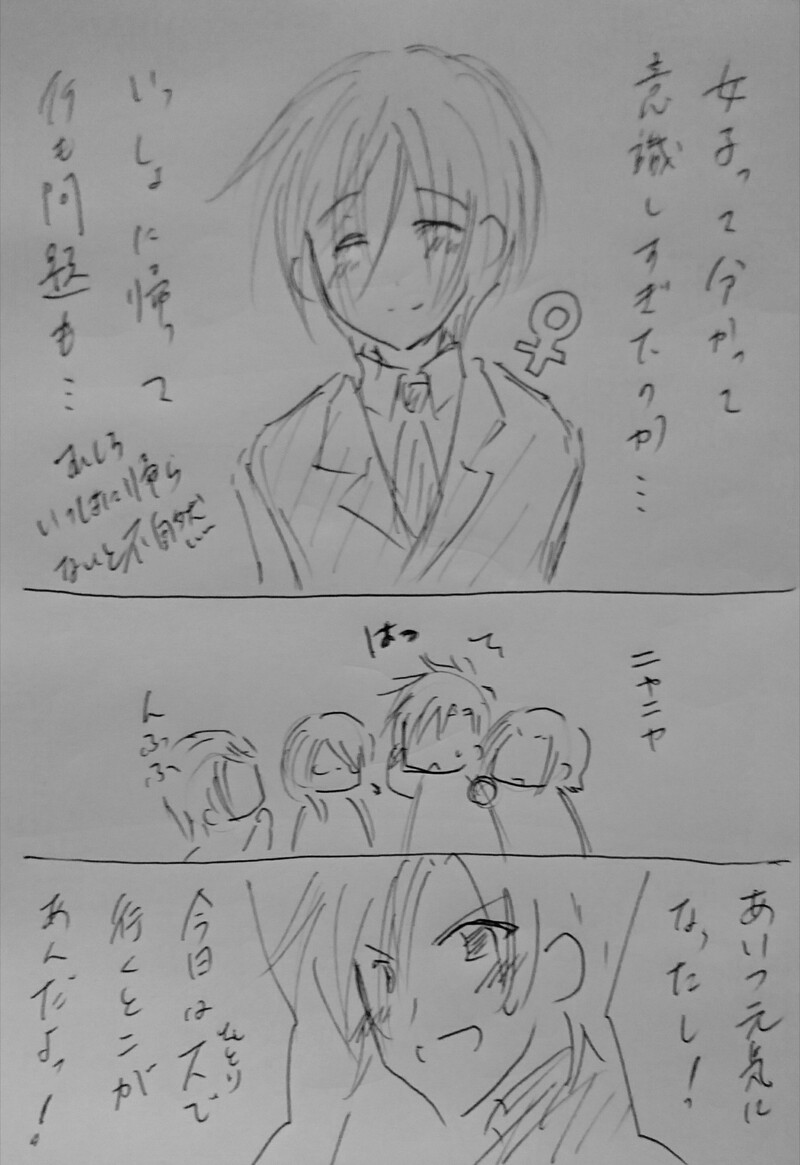 女子って分かって
意識しすぎたのか…
いっしょに帰って
何も問題も…
むしろ
いっしょに帰ら
ないと不自然…
ニヤニヤ
はっ
んふっふ
あいつ元気に
なったし!
今日は一人で
ひとり
行くとこが
あんだよっ!